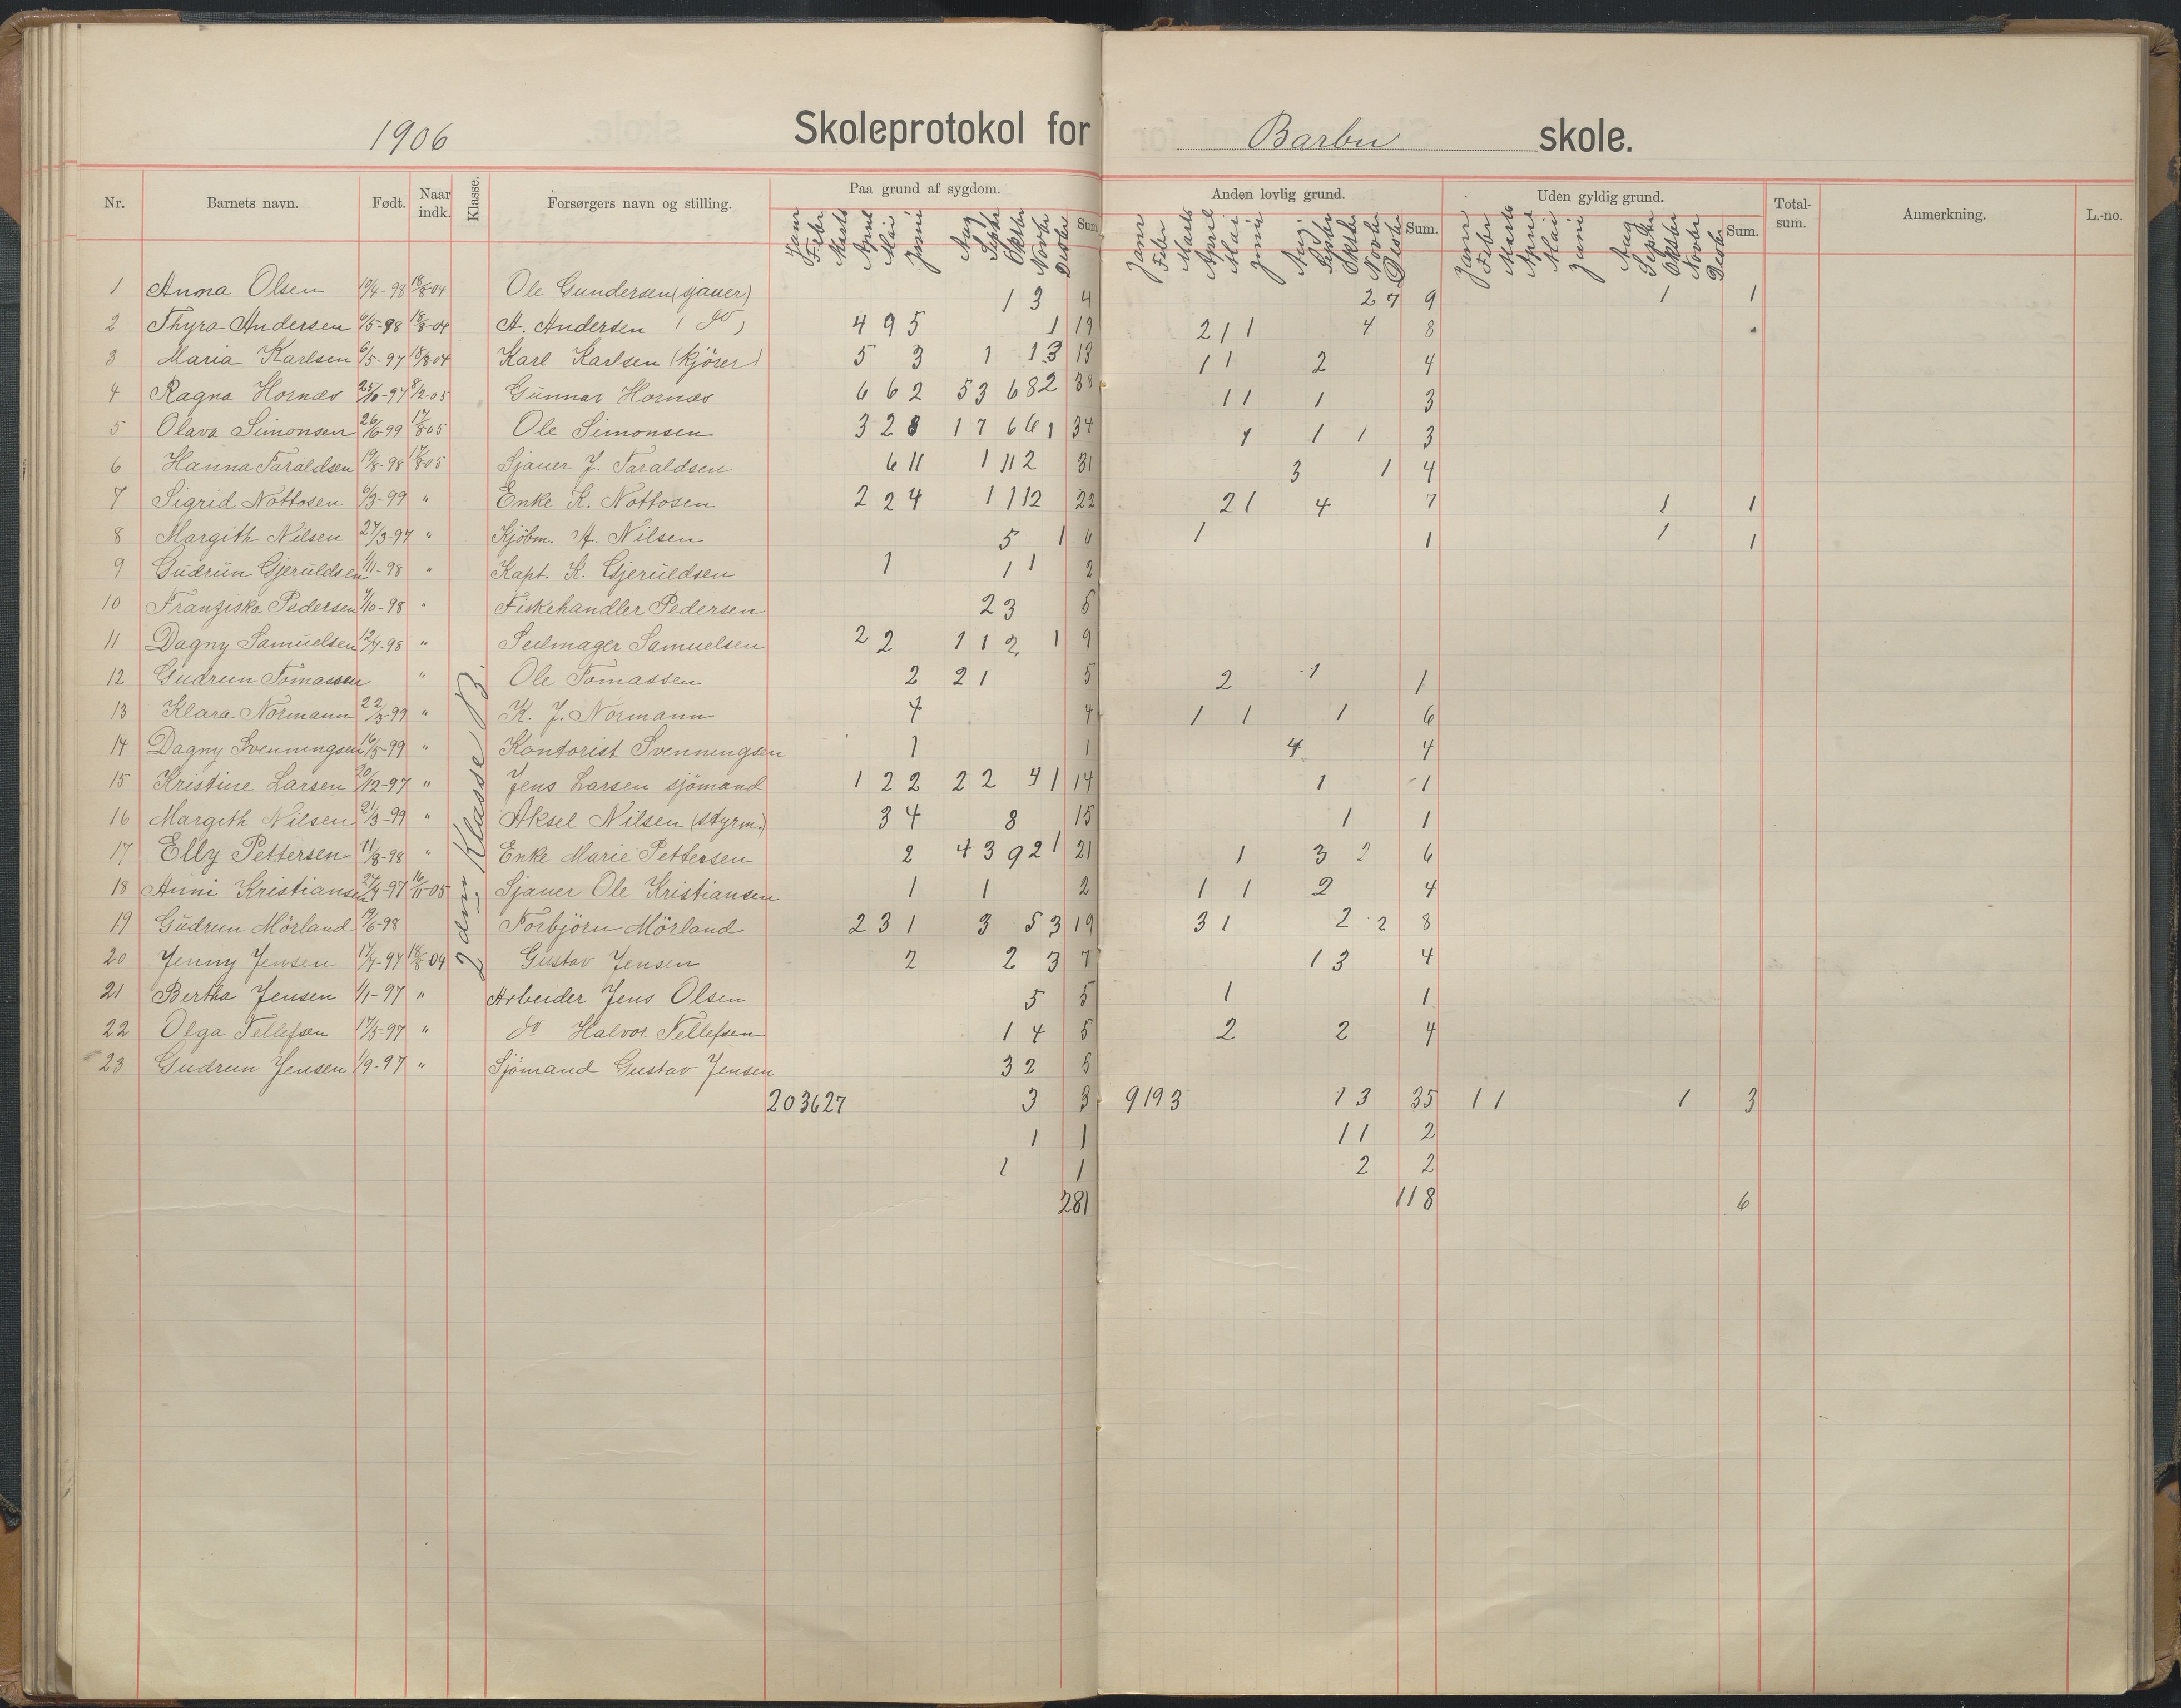 1906 Skoleprotokol for Barbu skole.
Nr. Barnets navn. Født. Naar indk. Klasse. Forsørgers navn og stilling. Paa grund af sygdom. Anden lovlig grund. Uden gyldig grund. Total-sum. Anmerkning. L.-no.
Janr Febr Marts April Mai Juni Aug Septbr Oktbr Novbr Desbr Sum Janr Febr Marts April Mai Juni Aug. Septbr Oktbr Novbr Desbr Sum. Janr Febr Marts April Mai Juni Aug Septbr Oktbr Novbr Desbr Sum.
2den Klasse B.
1 Anna Olsen 10/4-98 18/8-04 Ole Gundersen (sjauer) 1 3 4 2 7 9 1 1
2 Thyra Andersen 6/5-98 18/8-04 A. Andersen ( do ) 4 9 5 1 19 2 1 1 4 8
3 Maria Karlsen 6/5-97 18/8-04 Karl Karlsen (kjörer) 5 3 1 1 3 13 1 1 2 4
4 Ragna Hornæs 25/10-97 8/12-05 Gunnar Hornæs 6 6 2 5 3 6 8 2 38 1 1 1 3
5 Olava Simonsen 26/6-99 17/8-05 Ole Simonsen 3 2 8 1 7 6 6 1 34 1 1 1 3
6 Hanna Taraldsen 19/8-98 17/8-05 Sjauer J. Taraldsen 6 11 1 11 2 31 3 1 4
7 Sigrid Nottosen 6/3-99 " Enke K. Nottosen 2 2 4 1 1 12 22 2 1 4 7 1 1
8 Margith Nilsen 27/3-97 " Kjöbm. A. Nilsen 5 1 6 1 1 1 1
9 Gudrun Gjeruldsen 1/11-98 " Kapt. K. Gjeruldsen 1 1 1 2
10 Franziska Pedersen 7/10-98 " Fiskehandler Pedersen 2 3 5
11 Dagny Samuelsen 12/7-98 " Seilmager Samuelsen 2 2 1 1 2 1 9
12 Gudrun Tomassen " Ole Tomassen 2 2 1 5 2 1 1
13 Klara Normann 22/3-99 " K. J. Normann 4 4 1 1 1 6
14 Dagny Svenningsen 16/5-99 " Kontorist Svenningsen 1 1 4 4
15 Kristine Larsen 20/12-97 " Jens Larsen sjömand 1 2 2 2 2 4 1 14 1 1
16 Margith Nilsen 21/3-99 " Aksel Nilsen (styrm.) 3 4 8 15 1 1
17 Elly Pettersen 11/8-98 " Enke Marie Pettersen 2 4 3 9 2 1 21 1 3 2 6
18 Anni Kristiansen 27/4-97 16/11-05 Sjauer Ole Kristiansen 1 1 2 1 1 2 4
19 Gudrun Mörland 19/6-98 Torbjörn Mörland 2 3 1 3 5 3 19 3 1 2 2 8
20 Jenny Jensen 17/7-97 18/8-04 Gustav Jensen 2 2 3 7 1 3 4
21 Bertha Jensen 1/1-97 " Arbeider Jens Olsen 5 5 1 1
22 Olga Tellefsen 17/5-97 " do Halvor Tellefsen 1 4 5 2 2 4
23 Gudrun Jensen 1/9-97 " Sjömand Gustav Jensen 3 2 5
20 36 27 3 3 9 19 3 1 3 35 1 1 1 3
1 1 1 1 2
1 1 2 2
281 118 6